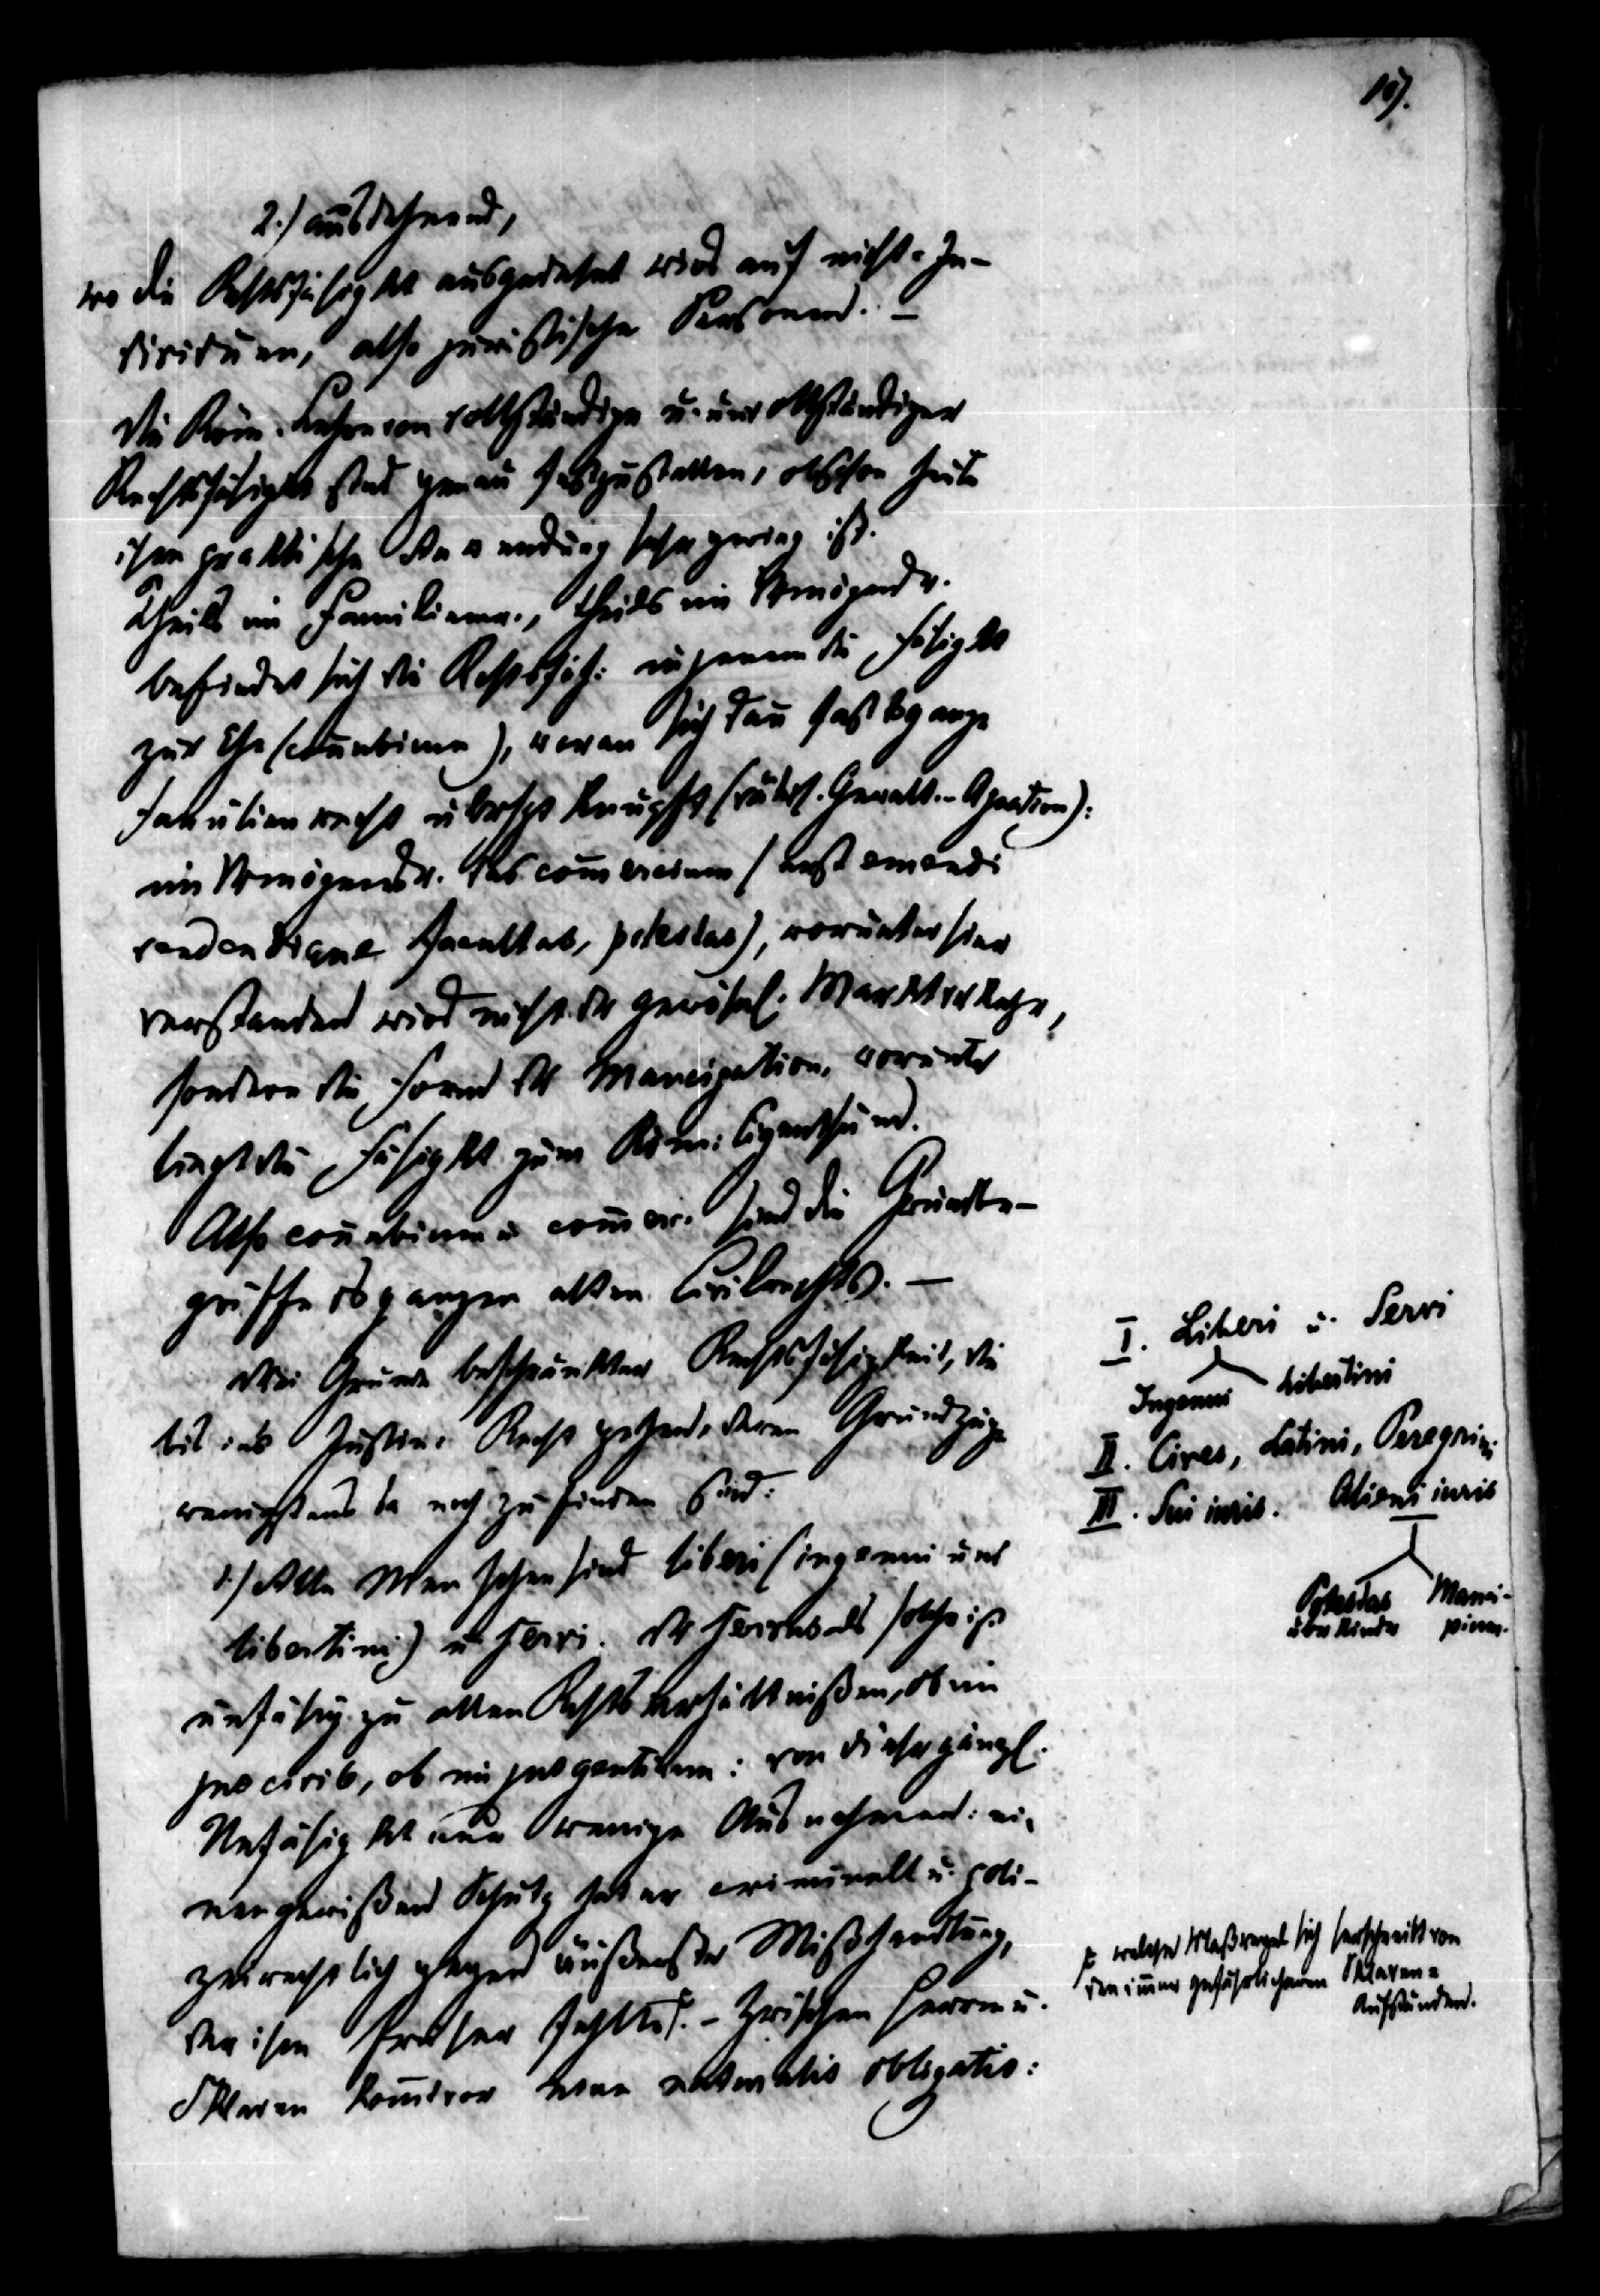 107.
2.) ausdehnend,
wo die Rechtsfähigkt ausgedehnt wird auf nicht-In-
dividuen, also juristische Personen. —
Die Röm. Lehre von vollständiger u. unvollständiger
Rechtsfähigkt ist genau festzustellen, obschon heute
ihre praktische Anwendung sehr gering ist.
Theils im Familienr., theils im Vermögensr.
befindet sich die Rechtsfäh: in jenem die Fähigkt
zur Ehe (connubium), woran sich dann fast das ganze
Familienrecht überhpt knüpft (väterl. Gewalt. - Agnation):
im Vermögensr. das commercium (est emendi
vendendique facultas, potestas), worunter hier
verstanden wird nicht der gewöhnl. Marktverkehr,
sondern die Form der Mancipation, worunter
liegt die Fähigkt zum Röm: Eigenthum.
Also connubium u. commer. sind die Grundbe-
griffe des ganzen alten Civilrechts. —
Drei Gründe beschränkter Rechtsfähigkeit, die
bis ins Justin. Recht gehend, deren Grundzüge
wenigstens da noch zu finden sind:
1.) Alle Menschen sind liberi (ingenui und
libertini) u. servi. Der servus als solcher ist
unfähig zu allen Rechtsverhältnißen, ob im
jus civile, ob im jus gentium: von dieser gänzl.
Unfähigkt nur wenige Ausnahmen: ei-
nen gewißen Schutz hat er criminell u. poli-
zeirechtlich gegen äußerste Mißhandlung,
der ihm früher fehlte. - Zwischen Herrn u.
Sklaven kommt vor eine naturalis obligatio:
I. Liberi u. Servi
Ingenui libertini
II. Cives, Latini, Peregrini
III. Sui iuris. Alieni iuris
Potestas Manci-
über Kinder pium.
welche Maßregel sich herschreibt von
den immer gefährlicheren Sklaven=
Aufständen.